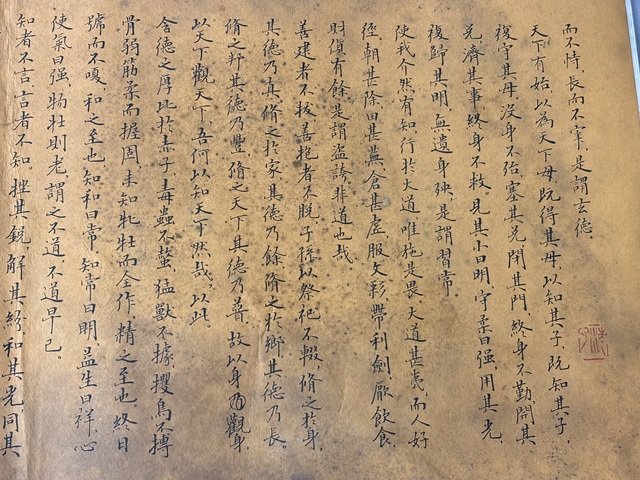 而不恃，長而不宰，是謂玄德。
天下有始，以為天下母，既得其母，以知其子，既知其子，
復守其母，沒身不殆，塞其兌，閉其門，終身不勤，開其
兌，濟其事，終身不救，見其小曰明，守柔曰强，用其光，
復歸其明，無遺身殃，是謂習常。
使我介然有知，行於大道，唯施是畏，大道甚夷，而人好
徑，朝甚除，田甚蕪，倉甚虛，服文彩，帶利劍，厭飲食，
財貨有餘，是謂盜誇，非道也哉
善建者不拔，善抱者不脫，子孫以祭祀不輟，脩之於身，
其德乃真，脩之於家，其德乃餘，脩之於鄉，其德乃長，
脩之於其德乃豐，脩之天下，其德乃普，故以身觀身，
以天下觀天下，吾何以知天下然哉，以此
含德之厚，比於赤子，毒蟲不螫，猛獸不據，攫鳥不摶
骨弱筋柔而握固，未知牝牡而全作，精之至也，終日
號而不嗄，和之至也，知和曰常，知常曰明，益生曰祥，心
使氣曰强，物壯則老，謂之不道，不道早已。
知者不言，言者不知，挫其銳，解其紛，和其光，同其